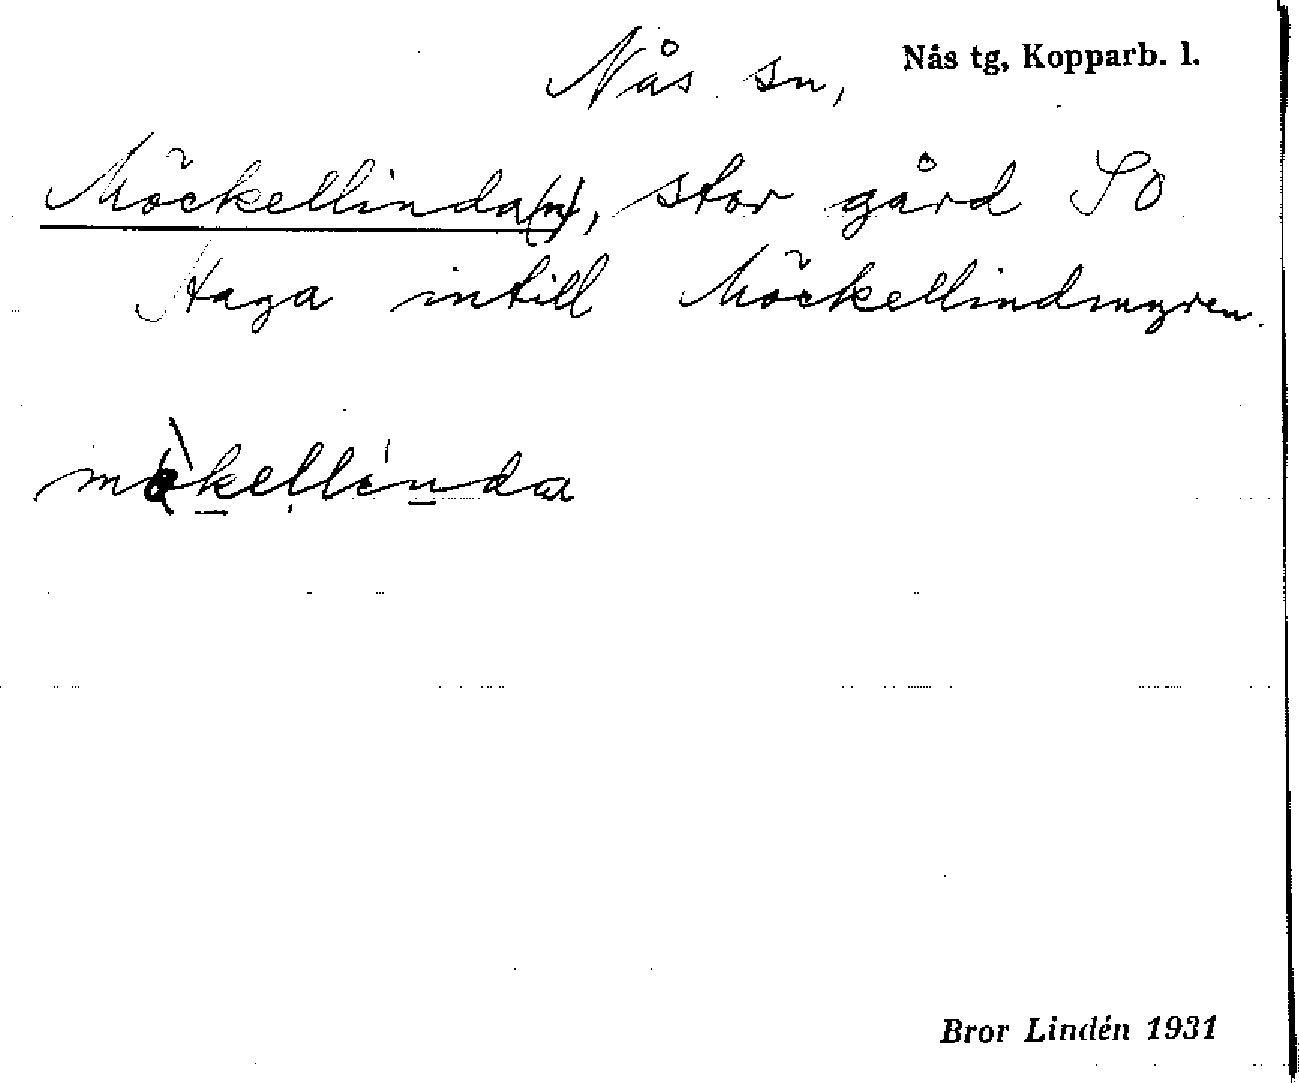 Nås sn, Nås tg, Kopparb. l.
Möckellinda(n), stor gård SO
Haga intill Möckellindmyren.
mökellinda
Bror Lindén 1931